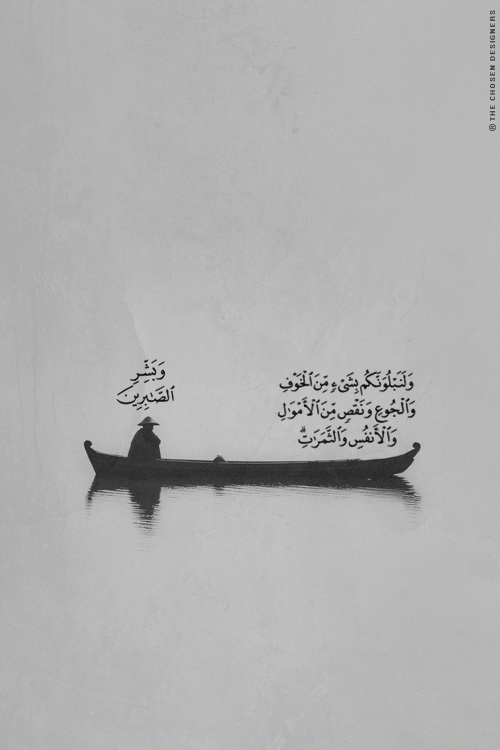 © THE CHOSEN DESIGNERS
وَلَنَبْلُوَنَّكُم بِشَىْءٍ مِّنَ ٱلْخَوْفِ
وَٱلْجُوعِ وَنَقْصٍ مِّنَ ٱلْأَمْوَٰلِ
وَٱلْأَنفُسِ وَٱلثَّمَرَٰتِ ۗ
وَبَشِّرِ
ٱلصَّـٰبِرِينَ